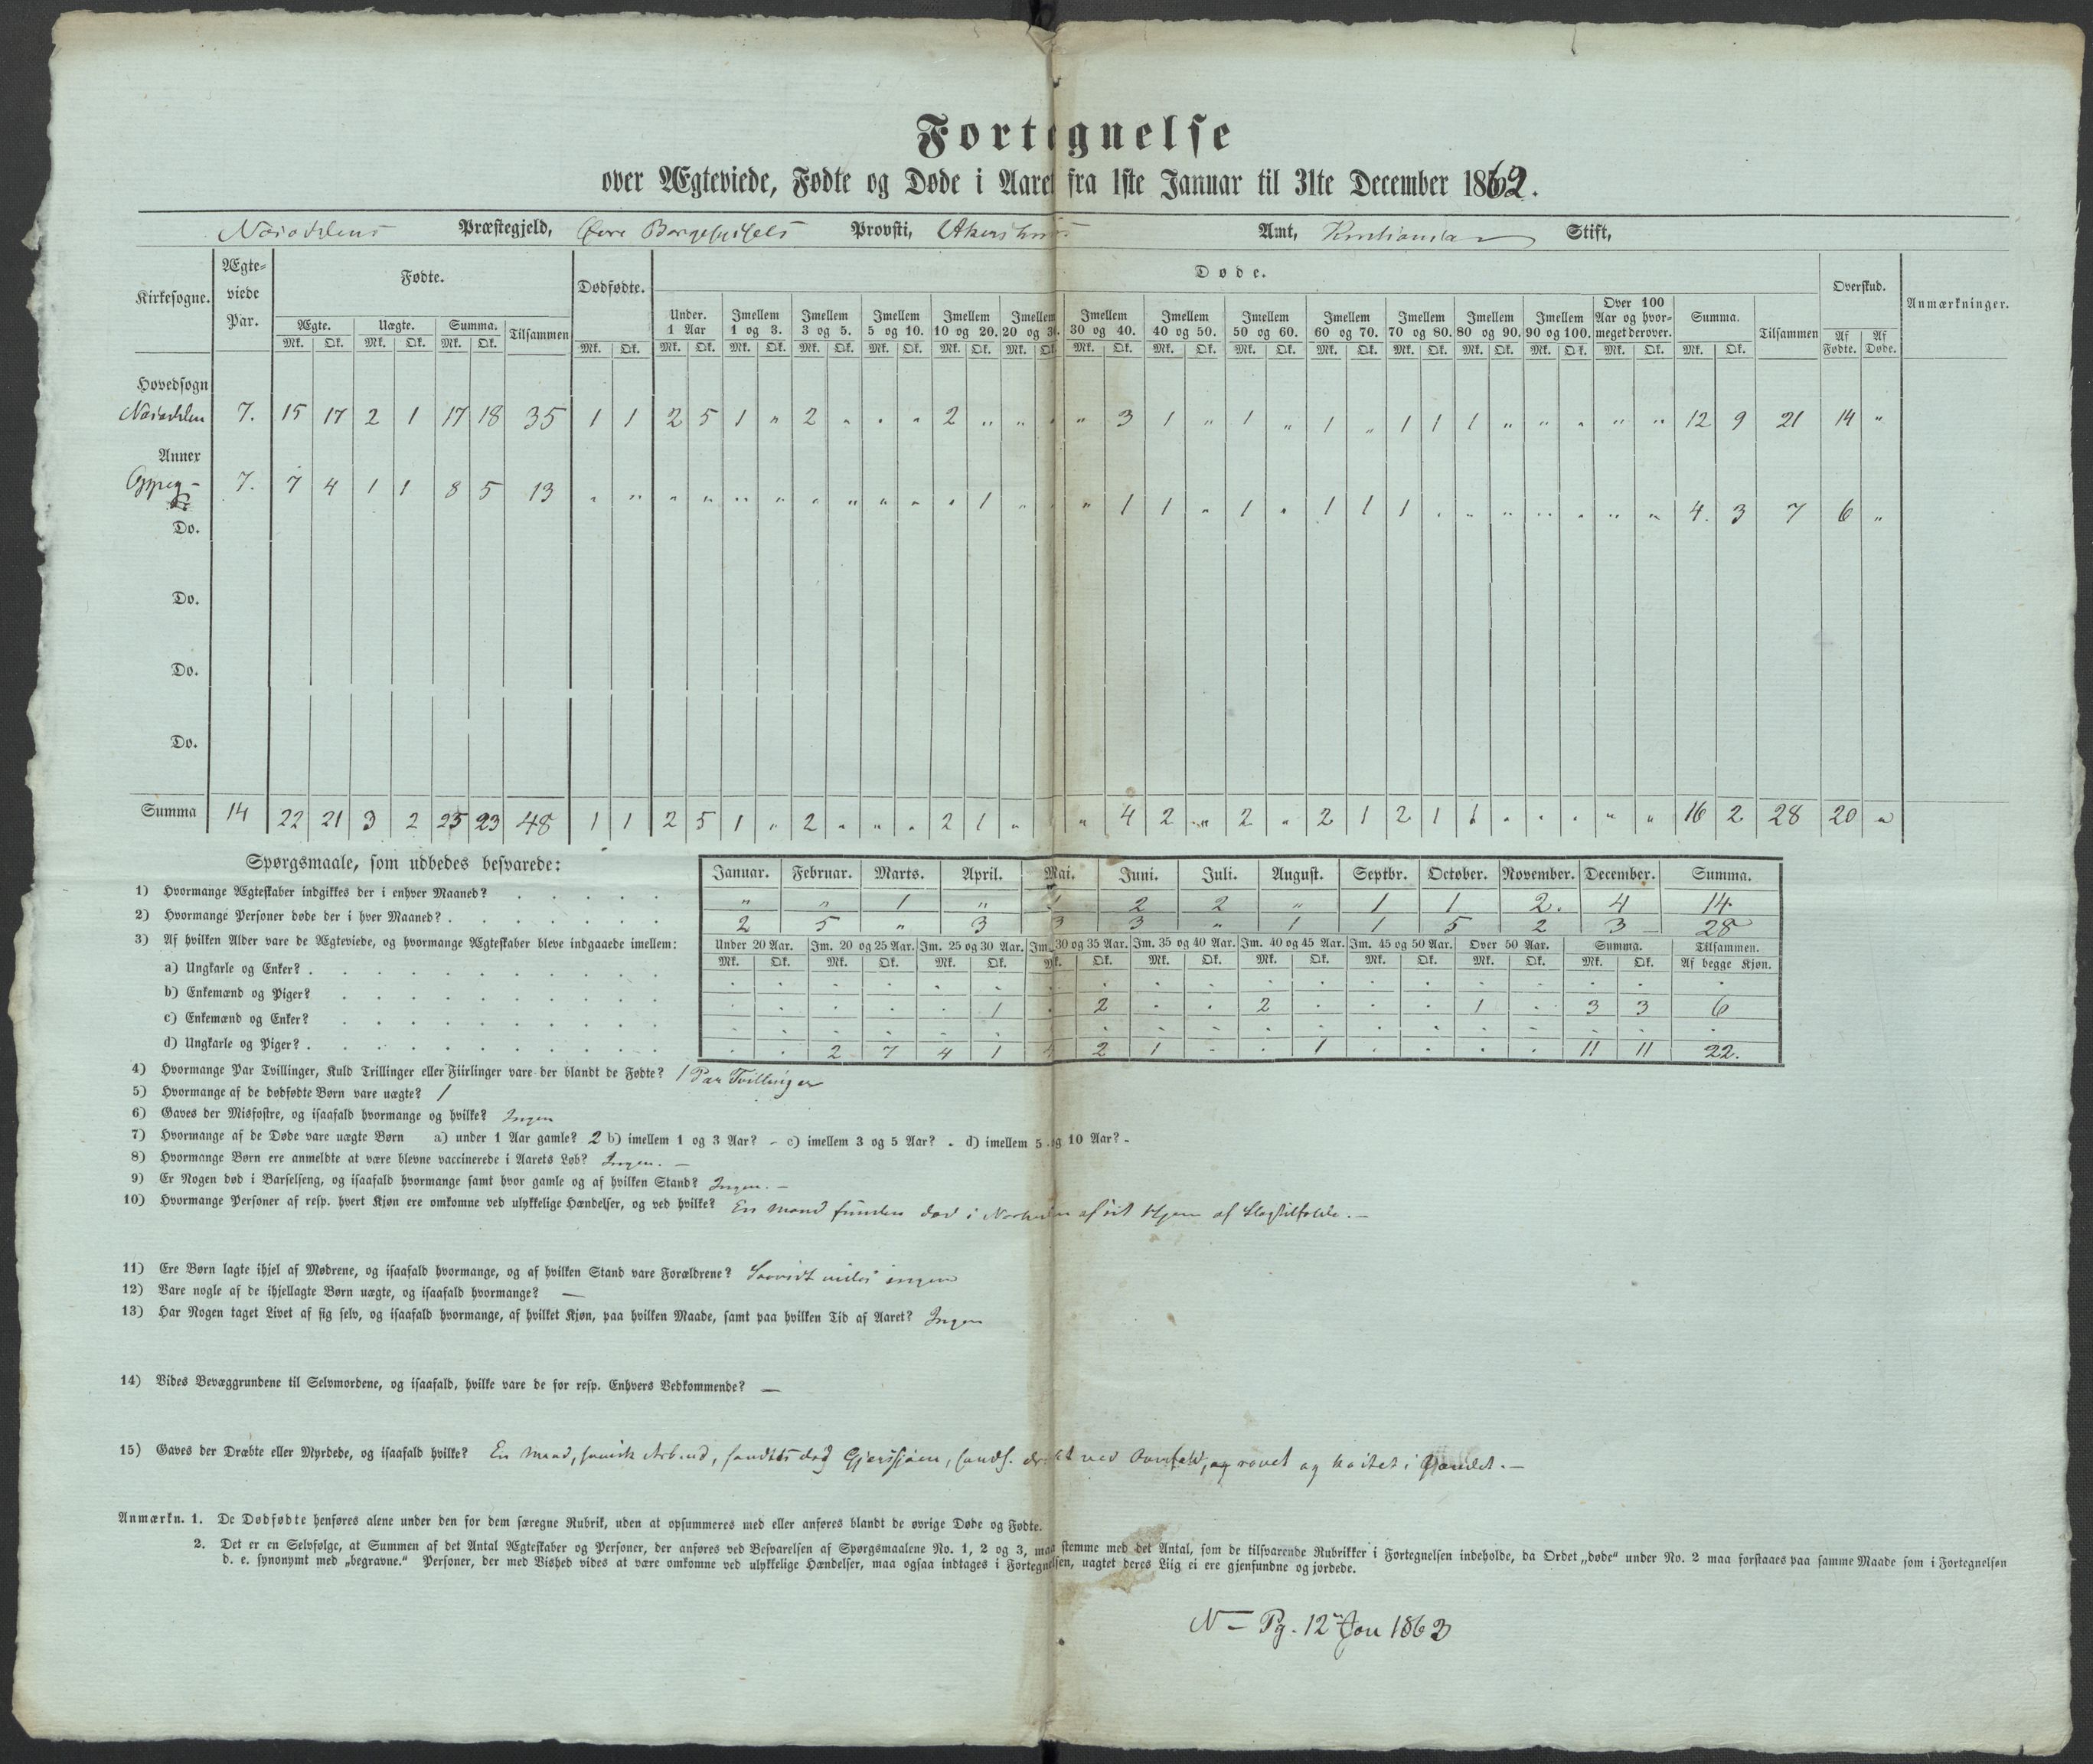 Fortegnelse
over Ægteviede, Fødte og Døde i Aaret fra 1ste Januar til 31te December 1862.
Præstegjeld, Øvre Provsti, Akershuus Amt, Stift,
Kirkesogne. Ægteviede Par. Fødte. Dødfødte. Døde. Overskud. Anmærkninger.
Ægte. Uægte. Summa. Tilsammen Under. 1 Aar Imellem 1 og 3. Imellem 3 og 5. Imellem 5 og 10. Imellem 10 og 20. Imellem 20 og 30. Imellem 30 og 40. Imellem 40 og 50. Imellem 50 og 60. Imellem 60 og 70. Imellem 70 og 80. Imellem 80 og 90. Imellem 90 og 100. Over 100 Aar og hvormeget derover. Summa. Tilsammen Af Fødte. Af Døde.
Mk. Qk. Mk. Qk. Mk. Qk. Mk. Qk. Mk. Qk. Mk. Qk. Mk. Qk. Mk. Qk. Mk. Qk. Mk. Qk. Mk. Qk. Mk. Qk. Mk. Qk. Mk. Qk. Mk. Qk. Mk. Qk. Mk. Qk. Mk. Qk. Mk. Qk.
Hovedsogn
7. 15 17 2 1 17 18 35 1 1 2 5 1 " 2 " " " 2 " " " " 3 1 " 1 " 1 " 1 1 1 " " " " " 12 9 21 14 "
Annex
7. 7 4 1 1 8 5 13 " " " " " " " " " " " 1 " " " 1 1 " 1 " 1 1 1 " " " " " " " 4. 3 7 6 "
Do.
Do.
Do.
Do.
Summa 14 22 21 3 2 25 23 48 1 1 2 5 1 " 2 " " " 2 1 " " 4 2 " 2 " 2 1 2 1 1 " " " " " 16 2 28 20 "
Spørgsmaale, som udbedes besvarede:
Januar. Februar. Marts. April. Mai. Juni. Juli. August. Septbr. October. November. December. Summa.
1) Hvormange Ægteskaber indgikkes der i enhver Maaned? " " 1 " 1 2 2 " 1 1 2. 4 14
2) Hvormange Personer døde der i hver Maaned? 2 5 " 3 3 3 " 1 1 5 2 3 28
3) Af hvilken Alder vare de Ægteviede, og hvormange Ægteskaber bleve indgaaede imellem: Under 20 Aar. Im. 20 og 25 Aar. Im. 25 og 30 Aar. Im. 30 og 35 Aar. Im. 35 og 40 Aar. Im. 40 og 45 Aar. Im. 45 og 50 Aar. Over 50 Aar. Summa. Tilsammen.
Mk. Qk. Mk. Qk. Mk. Qk. Mk. Qk. Mk. Qk. Mk. Qk. Mk. Qk. Mk. Qk. Mk. Qk. Af begge Kjøn.
a) Ungkarle og Enker?
b) Enkemænd og Piger? 1 2 2 1 3 3 6
c) Enkemænd og Enker?
d) Ungkarle og Piger? 2 7 4 1 4 2 1 1 11 11 22.
4) Hvormange Par Tvillinger, Kuld Trillinger eller Fiirlinger vare der blandt de Fødte? 1 Par Tvillinger
5) Hvormange af de dødfødte Børn vare uægte? 1
6) Gaves der Misfostre, og isaafald hvormange og hvilke? Ingen
7) Hvormange af de Døde vare uægte Børn a) under 1 Aar gamle? 2 b) imellem 1 og 3 Aar? - c) imellem 3 og 5 Aar? - d) imellem 5 og 10 Aar? -
8) Hvormange Børn ere anmeldte at være blevne vaccinerede i Aarets Løb? Ingen. —
9) Er Nogen død i Barselseng, og isaafald hvormange samt hvor gamle og af hvilken Stand? Ingen. —
10) Hvormange Personer af resp. hvert Kjøn ere omkomne ved ulykkelige Hændelser, og ved hvilke? En Mand funden død i af sit Hjem af Slagtilfælde. —
11) Ere Børn lagte ihjel af Mødrene, og isaafald hvormange, og af hvilken Stand vare Forældrene? Saavidt vides ingen
12) Vare nogle af de ihjellagte Børn uægte, og isaafald hvormange? —
13) Har Nogen taget Livet af sig selv, og isaafald hvormange, af hvilket Kjøn, paa hvilken Maade, samt paa hvilken Tid af Aaret? Ingen
14) Vides Bevæggrundene til Selvmordene, og isaafald, hvilke vare de for resp. Enhvers Vedkommende? —
15) Gaves der Dræbte eller Myrdede, og isaafald hvilke? En Mand, svensk Arbeid, fandtes død Gjersjøen, sands. dræbt ved Overfald, og røvet og kastet i Vandet. —
Anmærkn. 1. De Dødfødte henføres alene under den for dem særegne Rubrik, uden at opsummeres med eller anføres blandt de øvrige Døde og Fødte.
2. Det er en Selvfølge, at Summen af det Antal Ægteskaber og Personer, der anføres ved Besvarelsen af Spørgsmaalene No. 1, 2 og 3, maa stemme med det Antal, som de tilsvarende Rubrikker i Fortegnelsen indeholde, da Ordet „døde“ under No. 2 maa forstaaes paa samme Maade som i Fortegnelsen
d. e. synonymt med „begravne.“ Personer, der med Vished vides at være omkomne ved ulykkelige Hændelser, maa ogsaa indtages i Fortegnelsen, uagtet deres Liig ei ere gjenfundne og jordede.
N— Pg. 12 Jan 1863